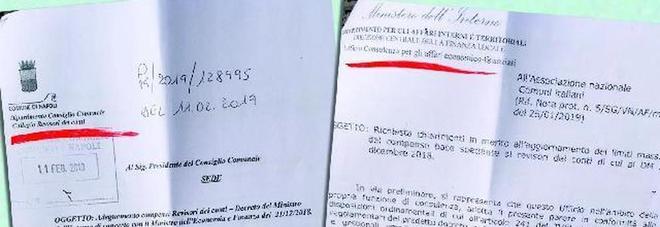 COMUNE DI NAPOLI
Dipartimento Consiglio Comunale
Collegio Revisori dei conti
PG/2019/128995
DEL 11.02.2019
NAPOLI
11 FEB. 2019
Al Sig. Presidente del Consiglio Comunale
SEDE
OGGETTO: Adeguamento compensi Revisori dei conti – Decreto del Ministro
di concerto con il Ministro dell'Economia e Finanza del 21/12/2018.
Ministero dell'Interno
DIPARTIMENTO PER GLI AFFARI INTERNI E TERRITORIALI
DIREZIONE CENTRALE DELLA FINANZA LOCALE
Ufficio Consulenza per gli affari economico-finanziari
All'Associazione nazionale
Comuni Italiani
(Rif. Nota prot. n. 5/SG/VN/AF/m
del 25/01/2019)
OGGETTO: Richiesta chiarimenti in merito all'aggiornamento dei limiti mass
del compenso base spettante ai revisori dei conti di cui al DM
dicembre 2018.
In via preliminare, si rappresenta che questo Ufficio nell'ambito della
propria funzione di consulenza, adotta il presente parere in conformità alle
disposizioni ordinamentali di cui all'articolo 241 del
regolamentari del predetto decreto